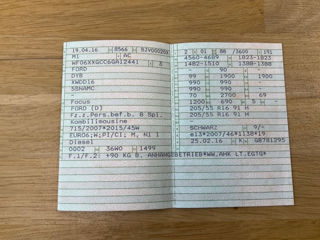 19.04.16 8566 BJV00020
M1 AC
WF06XXGCC6GA12441 8
FORD
DYB
XWDD16
5BNAMC
Focus
FORD (D)
Fz.z.Pers.bef.b. 8 Spl.
Kombilimousine
715/2007*2015/45W
EURO6;W;PI/CI; M, N1 I
Diesel
0002 36W0 1499
F.1/F.2: +90 KG B. ANHANGEBETRIEB*WW.AHK LT.EGTG*
2 01 88 /3600 191
4560-4689 1823-1823
1482-1510 1388-1388
90
99 1900 1900
990 990
990 990
70 2700 69
1200 690 5
205/55 R16 91 H
205/55 R16 91 H
SCHWARZ 9/-
e13*2007/46*1138*19
25.02.16 K GB781295